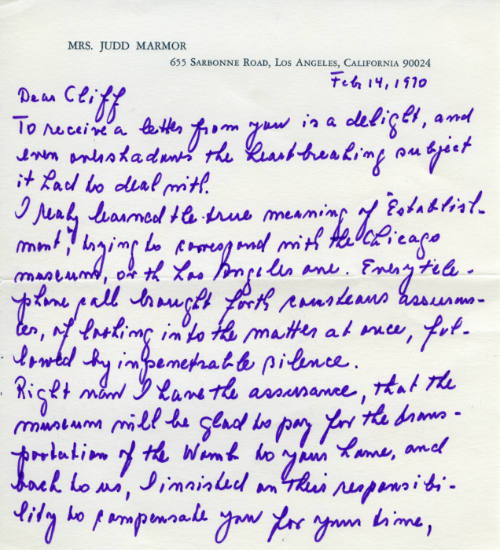 MRS. JUDD MARMOR
655 SARBONNE ROAD, LOS ANGELES, CALIFORNIA 90024
Feb 14, 1970
Dear Cliff
To receive a letter from you is a delight, and
even overshadows the heartbreaking subject
it had to deal with.
I realy learned the true meaning of "Establish-
ment", trying to correspond with the Chicago
museum, or th Los Angeles one. Every tele-
phone call brought forth courteous assuran-
ces, of looking in to the matter at once, fol-
lowed by inpenetrable silence.
Right now I have the assurance, that the
museum will be glad to pay for the trans-
portation of the Womb to your home, and
back to us, I insisted on their responsibi-
lity to compensate you for your time,